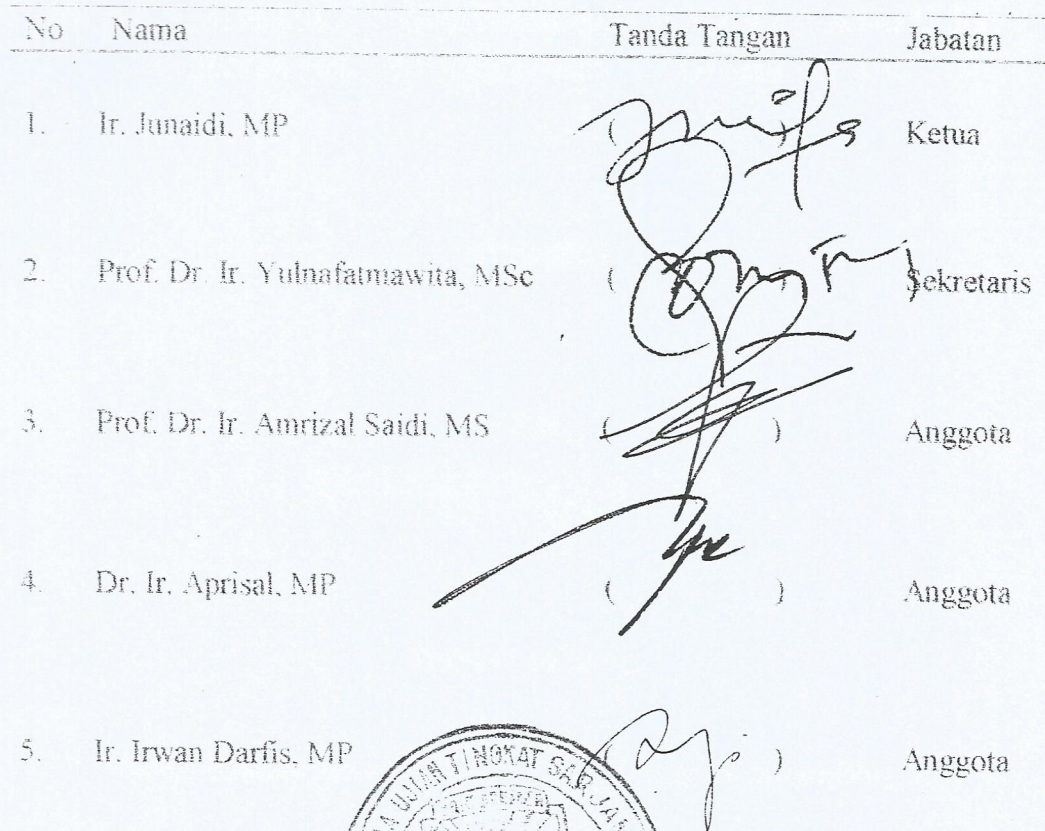 No Nama Tanda Tangan Jabatan
1. Ir. Junaidi, MP ( ) Ketua
2. Prof. Dr. Ir. Yulnafatmawita, MSc ( ) Sekretaris
3. Prof. Dr. Ir. Amrizal Saidi, MS ( ) Anggota
4. Dr. Ir. Aprisal, MP ( ) Anggota
5. Ir. Irwan Darfis, MP ( ) Anggota
UJIAN TINGKAT SARJANA